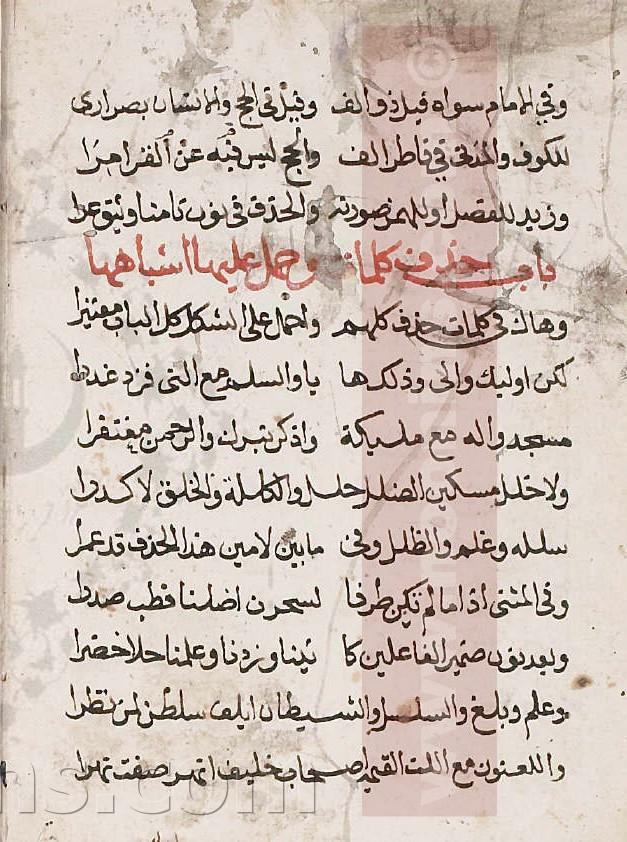 وفي الامام سواه قيل ذو الف وقيل في الحج والانسان بصر ارى
للكوف والمدني في فاطر الف والحج ليس فيه عن الفرا مرا
وزيد للفصل او للهمز صورته والحذف في نون تامنا وثيق عرا
باب حذف كلمات وحمل عليها اشباهها
وهاك في كلمات حذف كلهم واحمل على الشكل كل الباب معتبرا
لكن اوليك والى وذلك ها يا والسلم مع التى فرد غدرا
مسجد واله مع مليكة واذكر تبرك والرحمن مغتفرا
ولا خلل مسكين الضلل حلل والكللة والخلق لا كدرا
سللة وغلم والظلل وفى ما بين لامين هذا الحذف قد عمرا
وفى المثنى اذا ما لم يكن طرفا لسحرن اضلنا فطب صدرا
وبعد نون ضمير الفاعلين كا تينا وزدنا وعلمنا حلا خضرا
وعلم وبلغ والسلسل والشيطان ايلف سلطن لمن نظرا
واللعنون مع اللت القيمة اصحاب خليف انهر صفت نهرا